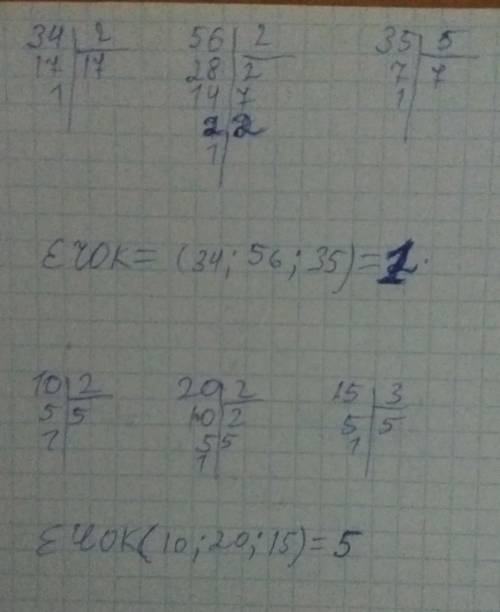 34 | 2 56 | 2 35 | 5
17 | 17 28 | 2 7 | 7
1 | 14 | 7 1 |
2 | 2
1 |
ЕҮОК= (34; 56; 35)=1.
10 | 2 20 | 2 15 | 3
5 | 5 10 | 2 5 | 5
1 | 5 | 5 1 |
1 |
ЕҮОК(10; 20; 15)= 5